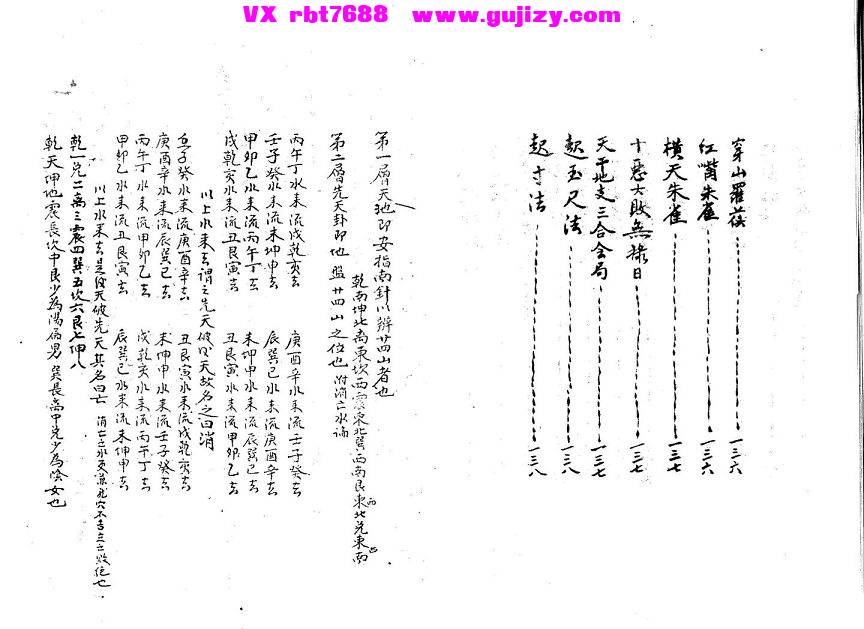 VX rbt7688 www.gujizy.com
穿山羅 一三六
红嘴朱雀 一三六
横天朱雀 一三七
十惡大敗無祿日 一三七
天干地支三合会局 一三七
起玉尺法 一三八
起寸法 一三八
第一層天池即安指南針以辦廿四山者也
乾南坤北离東坎西震東北巽西南艮東北兑東南
第二層先天卦即地盤廿四山之位也 附消亡水論
丙午丁水来流戌乾亥去 庚酉辛水来流壬子癸去
壬子癸水来流未坤申去 辰巽巳水来流庚酉辛去
甲卯乙水来流丙午丁去 未坤申水来流辰巽巳去
戌乾亥水来流丑艮寅去 丑艮寅水来流甲卯乙去
以上水来去謂之先天破天故名之曰消
壬子癸水来流庚酉辛去 丑艮寅水来流戌乾亥去
庚酉辛水来流辰巽巳去 未坤申水来流壬子癸去
丙午丁水来流甲卯乙去 戌乾亥水来流丙午丁去
甲卯乙水来流丑艮寅去 辰巽巳水来流未坤申去
以上水来去是天破先天其名曰亡 消亡之水穴不吉立敗绝也
乾一兑二离三震四巽五坎六艮七坤八
乾天坤地震長坎中艮少為陽為男 巽長离中兑少為陰女也